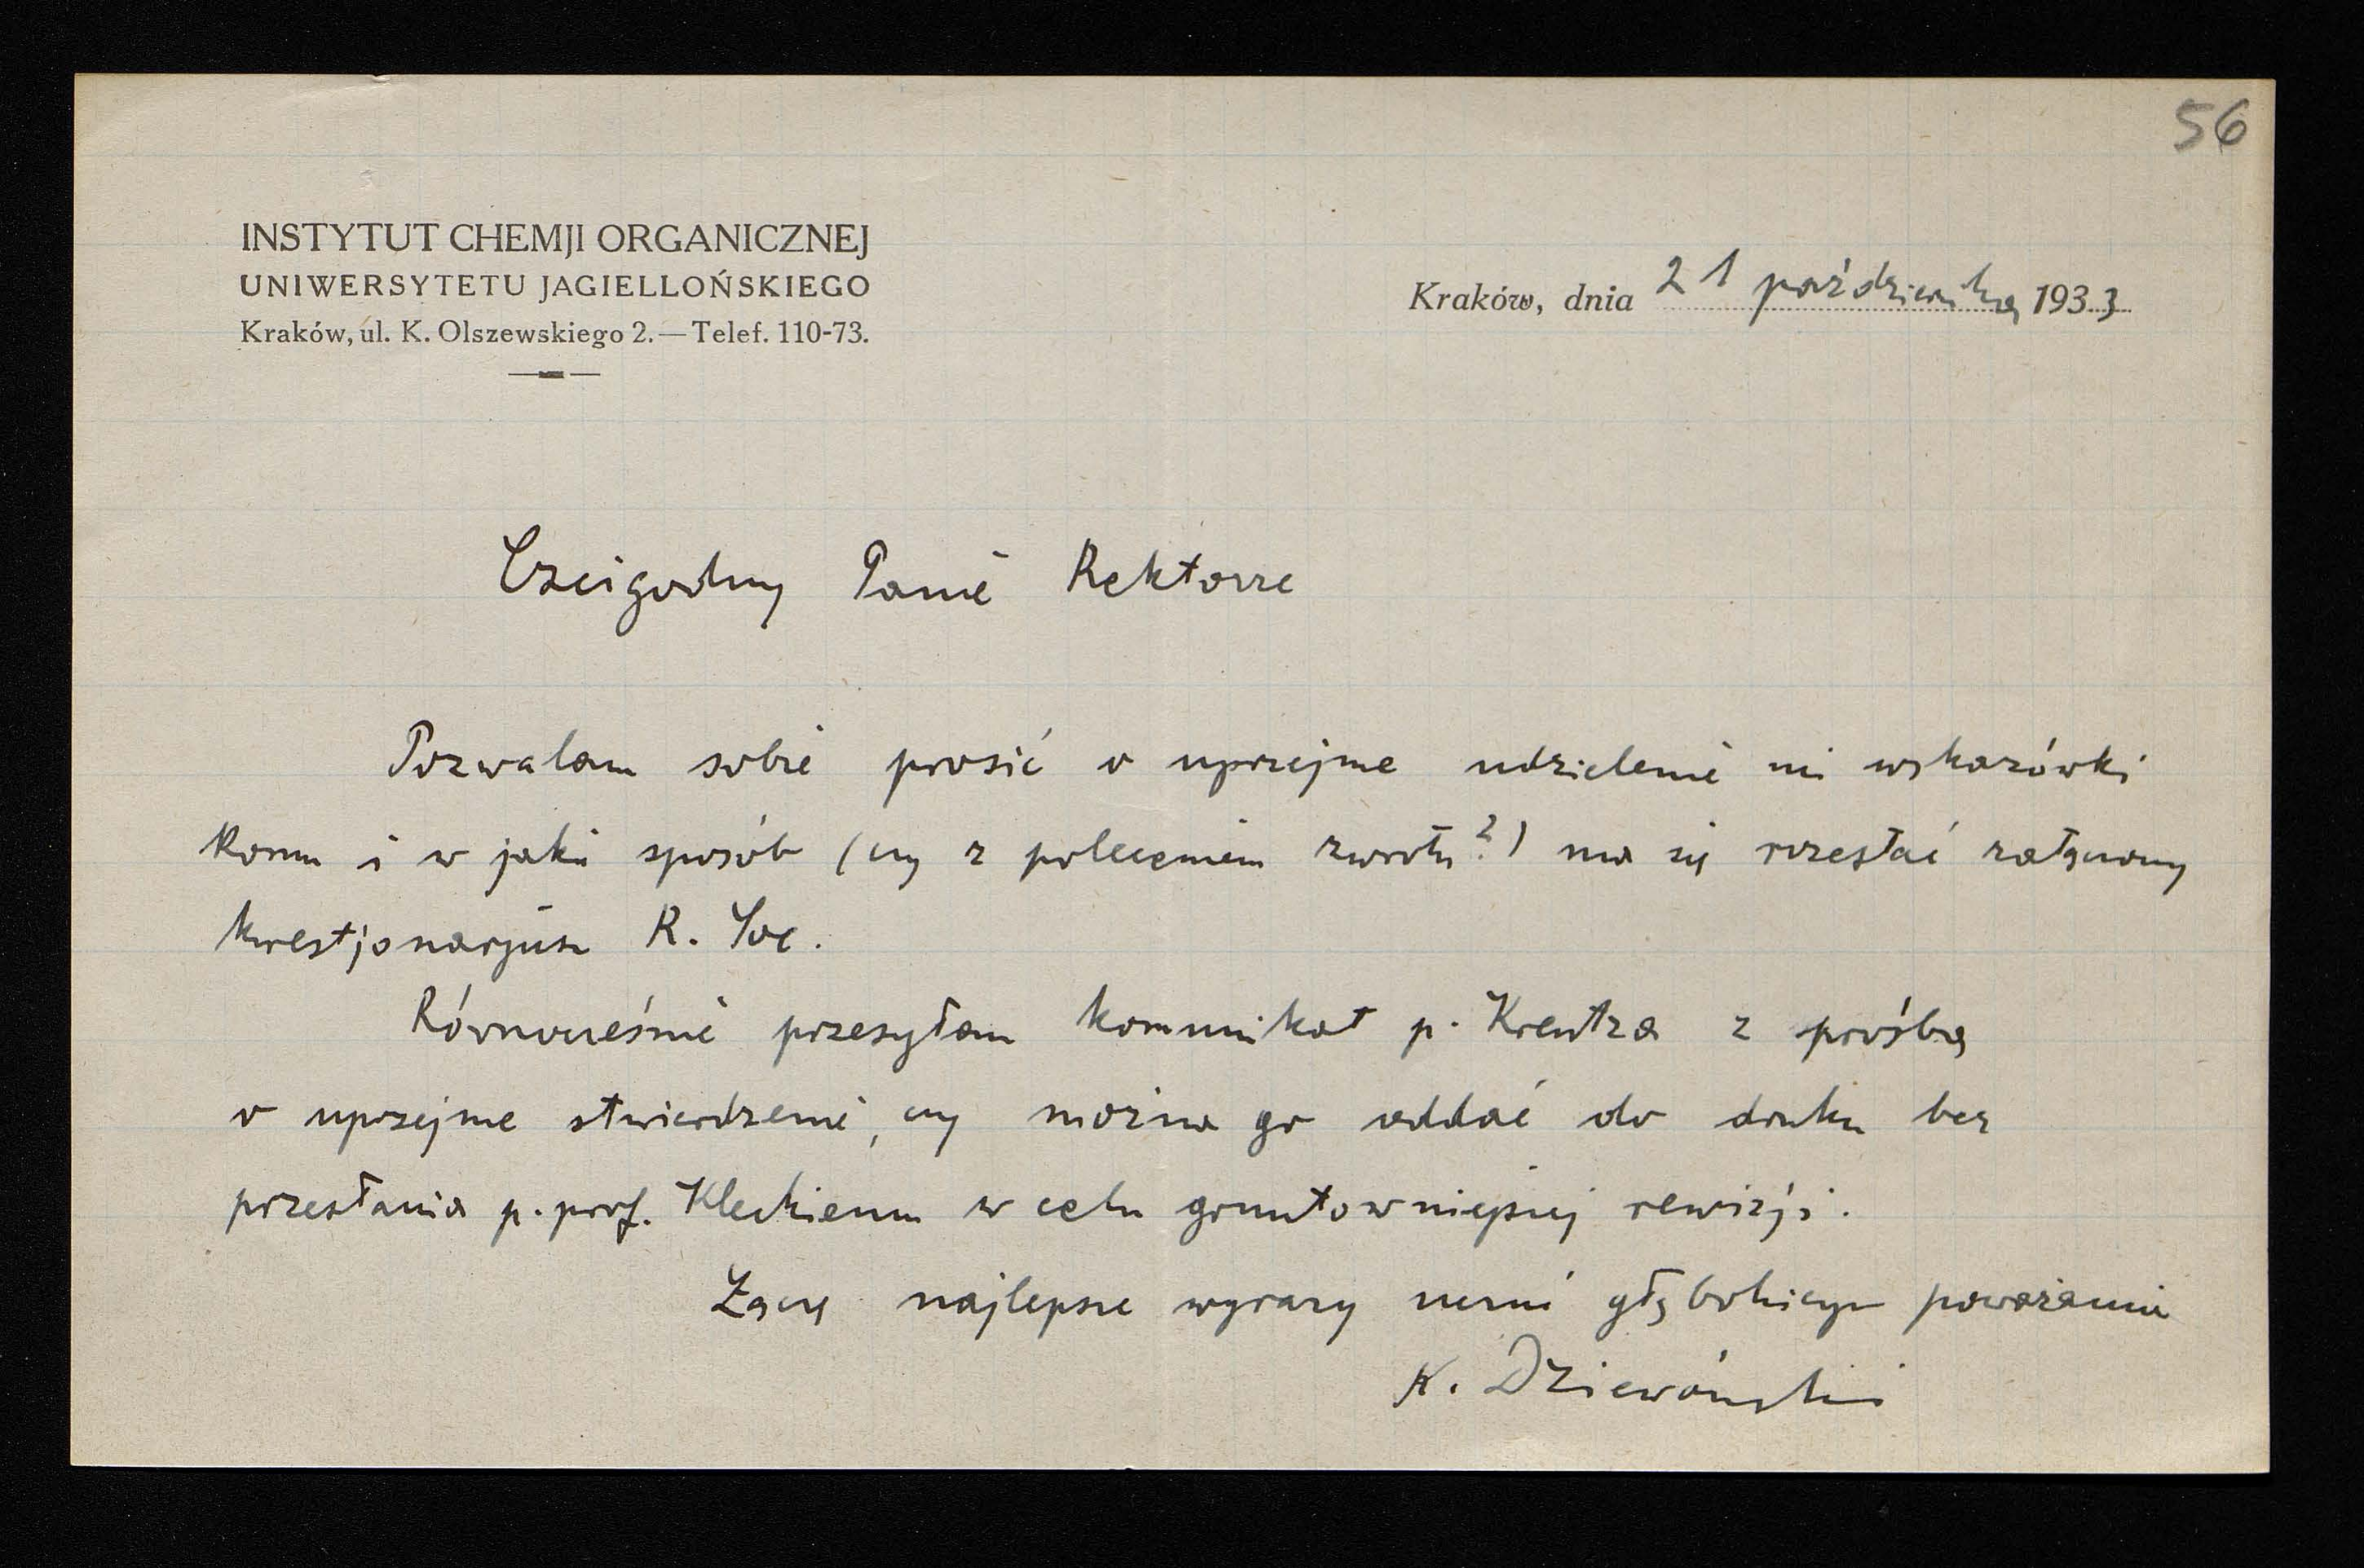 56
INSTYTUT CHEMJI ORGANICZNEJ
UNIWERSYTETU JAGIELLOŃSKIEGO
Kraków, ul. K. Olszewskiego 2.—Telef. 110-73.
Kraków, dnia 21 października 1933
Czcigodny Panie Rektorze
Pozwalam sobie prosić o uprzejme udzielenie mi wskazówki
komu i w jaki sposób (czy z poleceniem zwrotu?) ma się rozesłać załączony
kwestjonarjusz R. Soc.
Równocześnie przesyłam komunikat p. Kreutza z prośbą
o uprzejme stwierdzenie, czy można go oddać do druku bez
przesłania p. prof. Kleckiemu w celu gruntowniejszej rewizji.
Łączę najlepsze wyrazy głębokiego poważania
K. Dziewoński